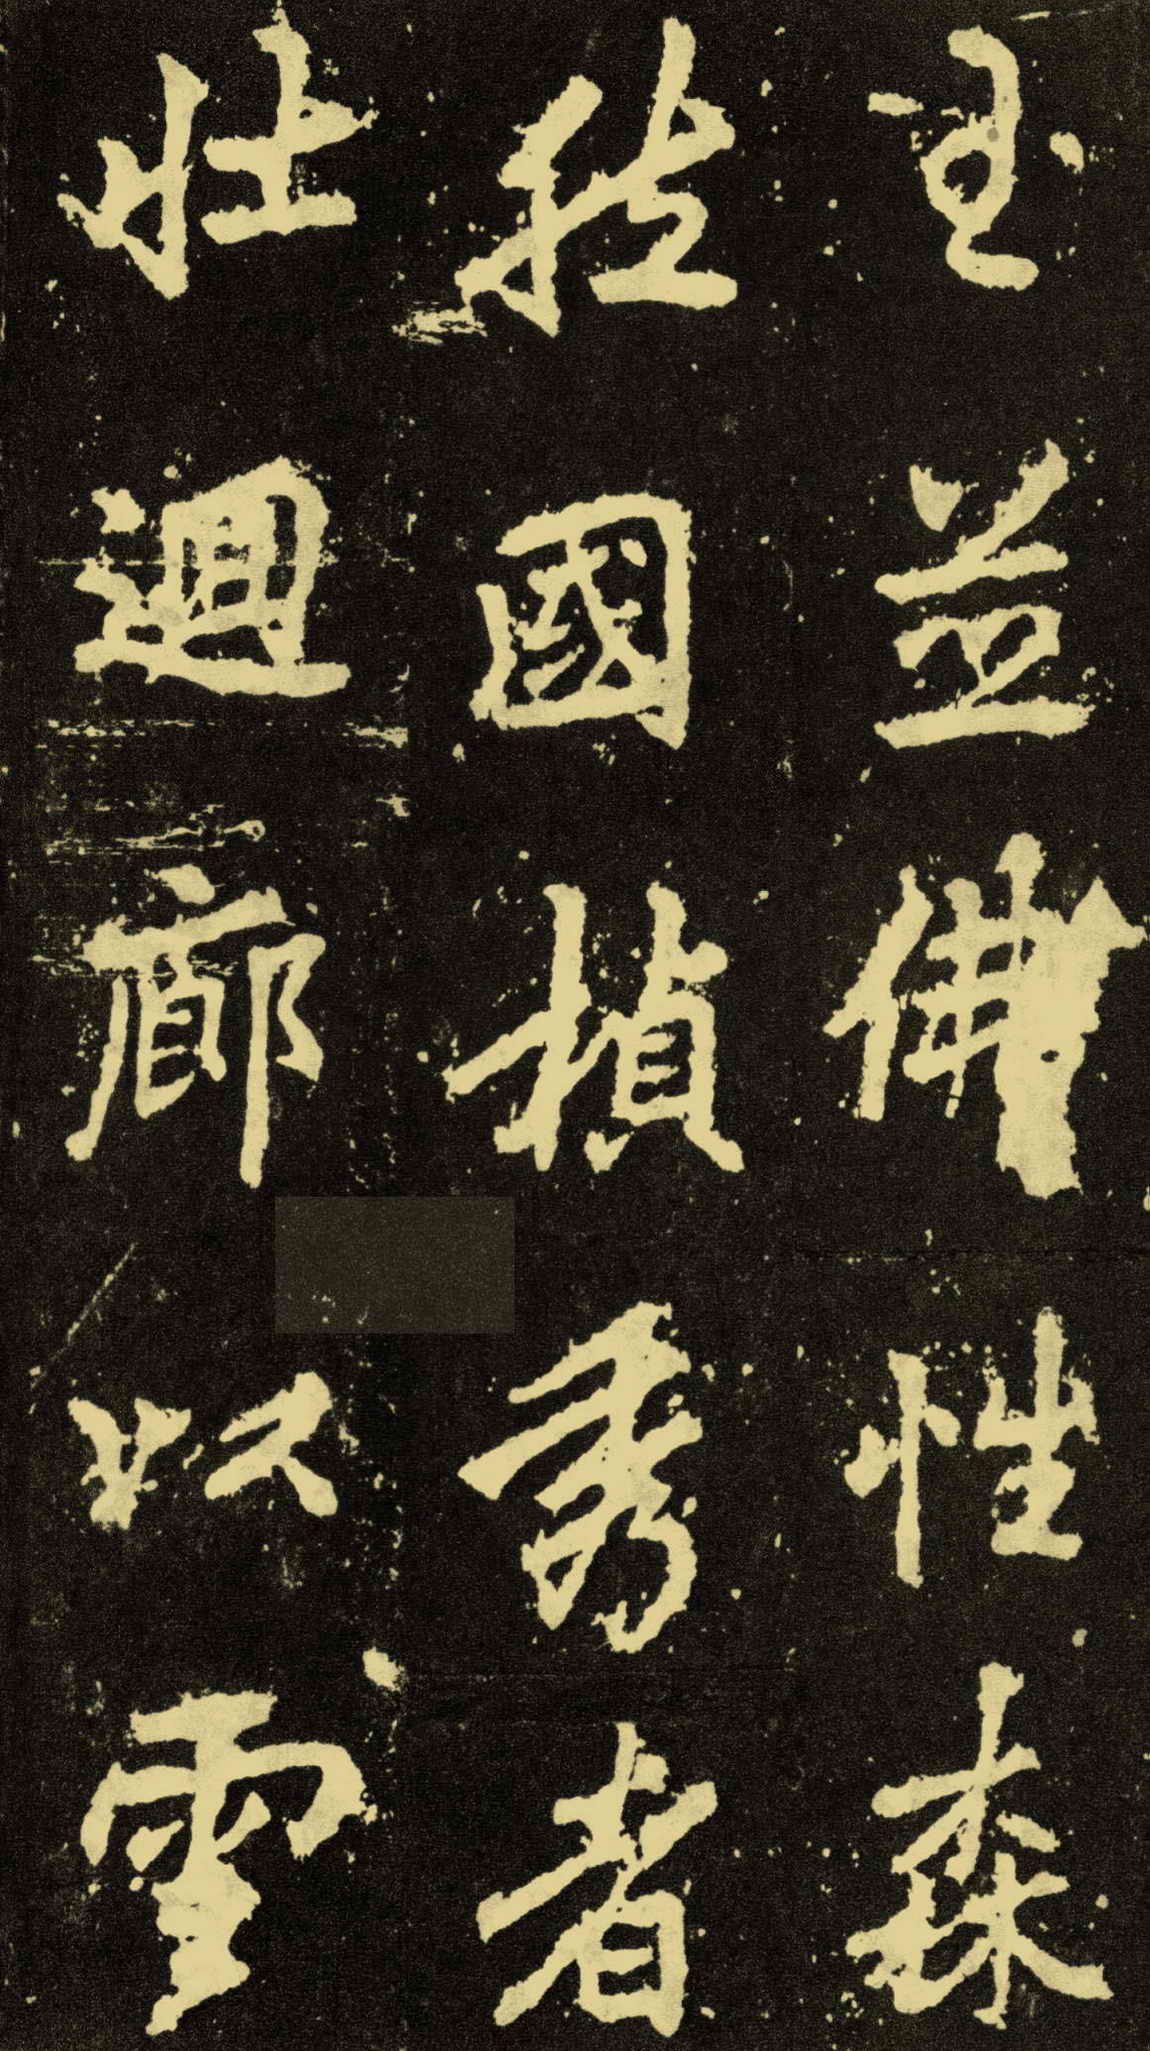 玉並佛性森
於國楨秀者
壯迴廊以雲